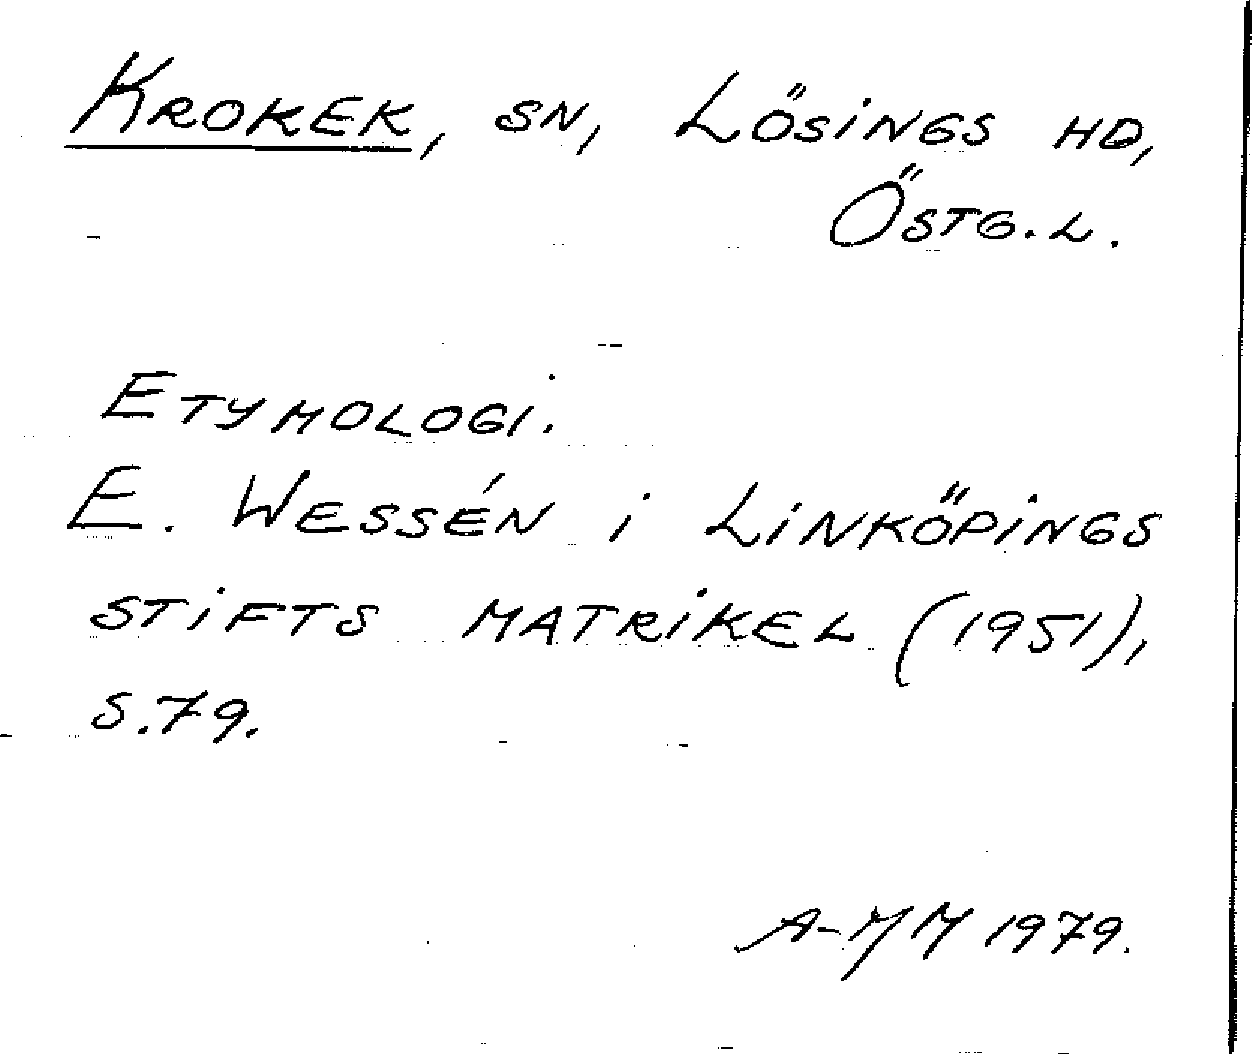 KROKEK, SN, LÖSINGS HD,
ÖSTG.L.
ETYMOLOGI.
E. WESSÉN i LINKÖPINGS
STIFTS MATRIKEL (1951),
S.79.
A-MM 1979.